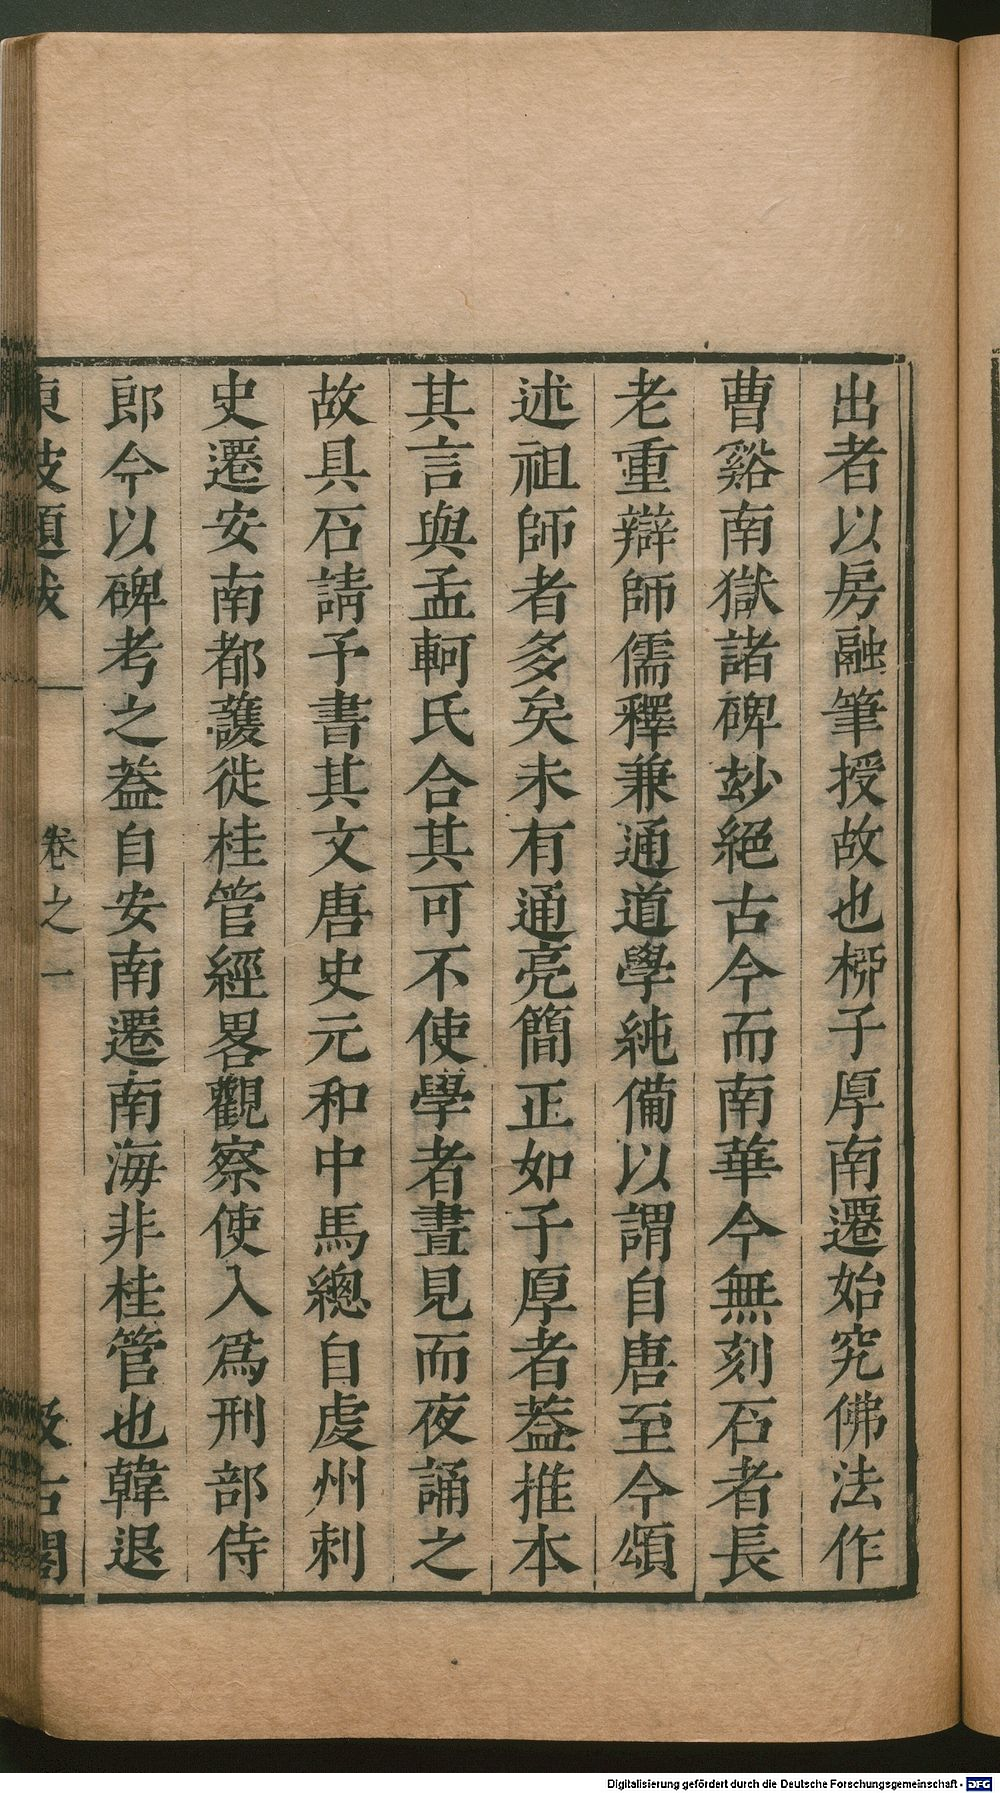 出者以房融筆授故也桺子厚南遷始究佛法作
曹谿南獄諸碑玅絕古今而南華今無刻石者長
老重辯師儒釋兼通道學純備以謂自唐至今頌
述祖師者多矣未有通亮簡正如子厚者葢推本
其言與孟軻氏合其可不使學者晝見而夜誦之
故具石請予書其文唐史元和中馬總自虔州刺
史遷安南都護徙桂管經畧觀察使入爲刑部侍
郎今以碑考之葢自安南遷南海非桂管也韓退
東坡題跋 卷之一 汲古閣
Digitalisierung gefördert durch die Deutsche Forschungsgemeinschaft - DFG